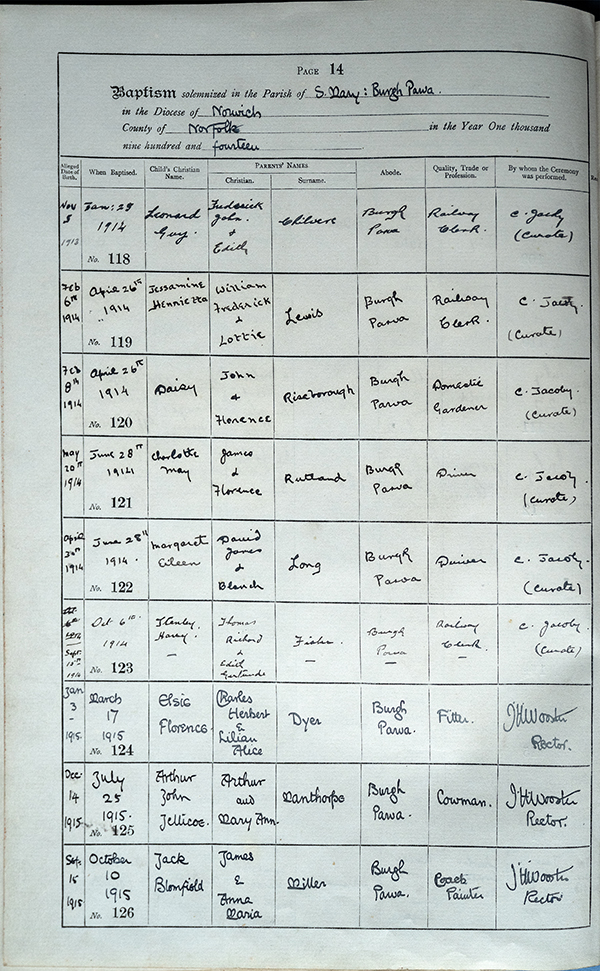 PAGE 14
Baptism solemnized in the Parish of S. Mary: Burgh Parva.
in the Diocese of Norwich
County of Norfolk in the Year One thousand
nine hundred and fourteen
Alleged Date of Birth. When Baptised. Child's Christian Name. PARENTS' NAMES Christian. Surname. Abode. Quality, Trade or Profession. By whom the Ceremony was performed.
Nov 5 1913 Jan: 25 1914 No. 118 Leonard Guy. Frederick John. & Edith Chilvers Burgh Parva Railway Clerk. C. Jacoby (Curate)
Feb 6th 1914 April 26th 1914 No. 119 Jessamine Henrietta William Frederick & Lottie Lewis Burgh Parva Railway Clerk. C. Jacoby (Curate)
Feb 8th 1914 April 26th 1914 No. 120 Daisy John & Florence Riseborough Burgh Parva Domestic Gardener C. Jacoby (Curate)
May 20th 1914 June 28th 1914 No. 121 Charlotte May James & Florence Rutland Burgh Parva Driver C. Jacoby (Curate)
April 1914 June 28th 1914. No. 122 Margaret Eileen David James & Blanch Long Burgh Parva Driver C. Jacoby. (Curate)
Sept. 1914 Oct 6th 1914 No. 123 Stanley Harry. Thomas Richard & Edith Gertrude Fisher. Burgh Parva Railway Clerk. C. Jacoby (Curate)
Jan 3 - 1915. March 17 1915 No. 124 Elsie Florence. Charles Herbert & Lilian Alice Dyer Burgh Parva. Fitter. J H Wooster Rector.
Dec. 14 1915 July 25 1915. No. 125 Arthur John Jellicoe. Arthur and Mary Ann. Manthorpe Burgh Parva. Cowman. J H Wooster Rector.
Sept. 15 1915 October 10 1915 No. 126 Jack Blomfield James & Anna Maria Miller Burgh Parva. Coach Painter J H Wooster Rector